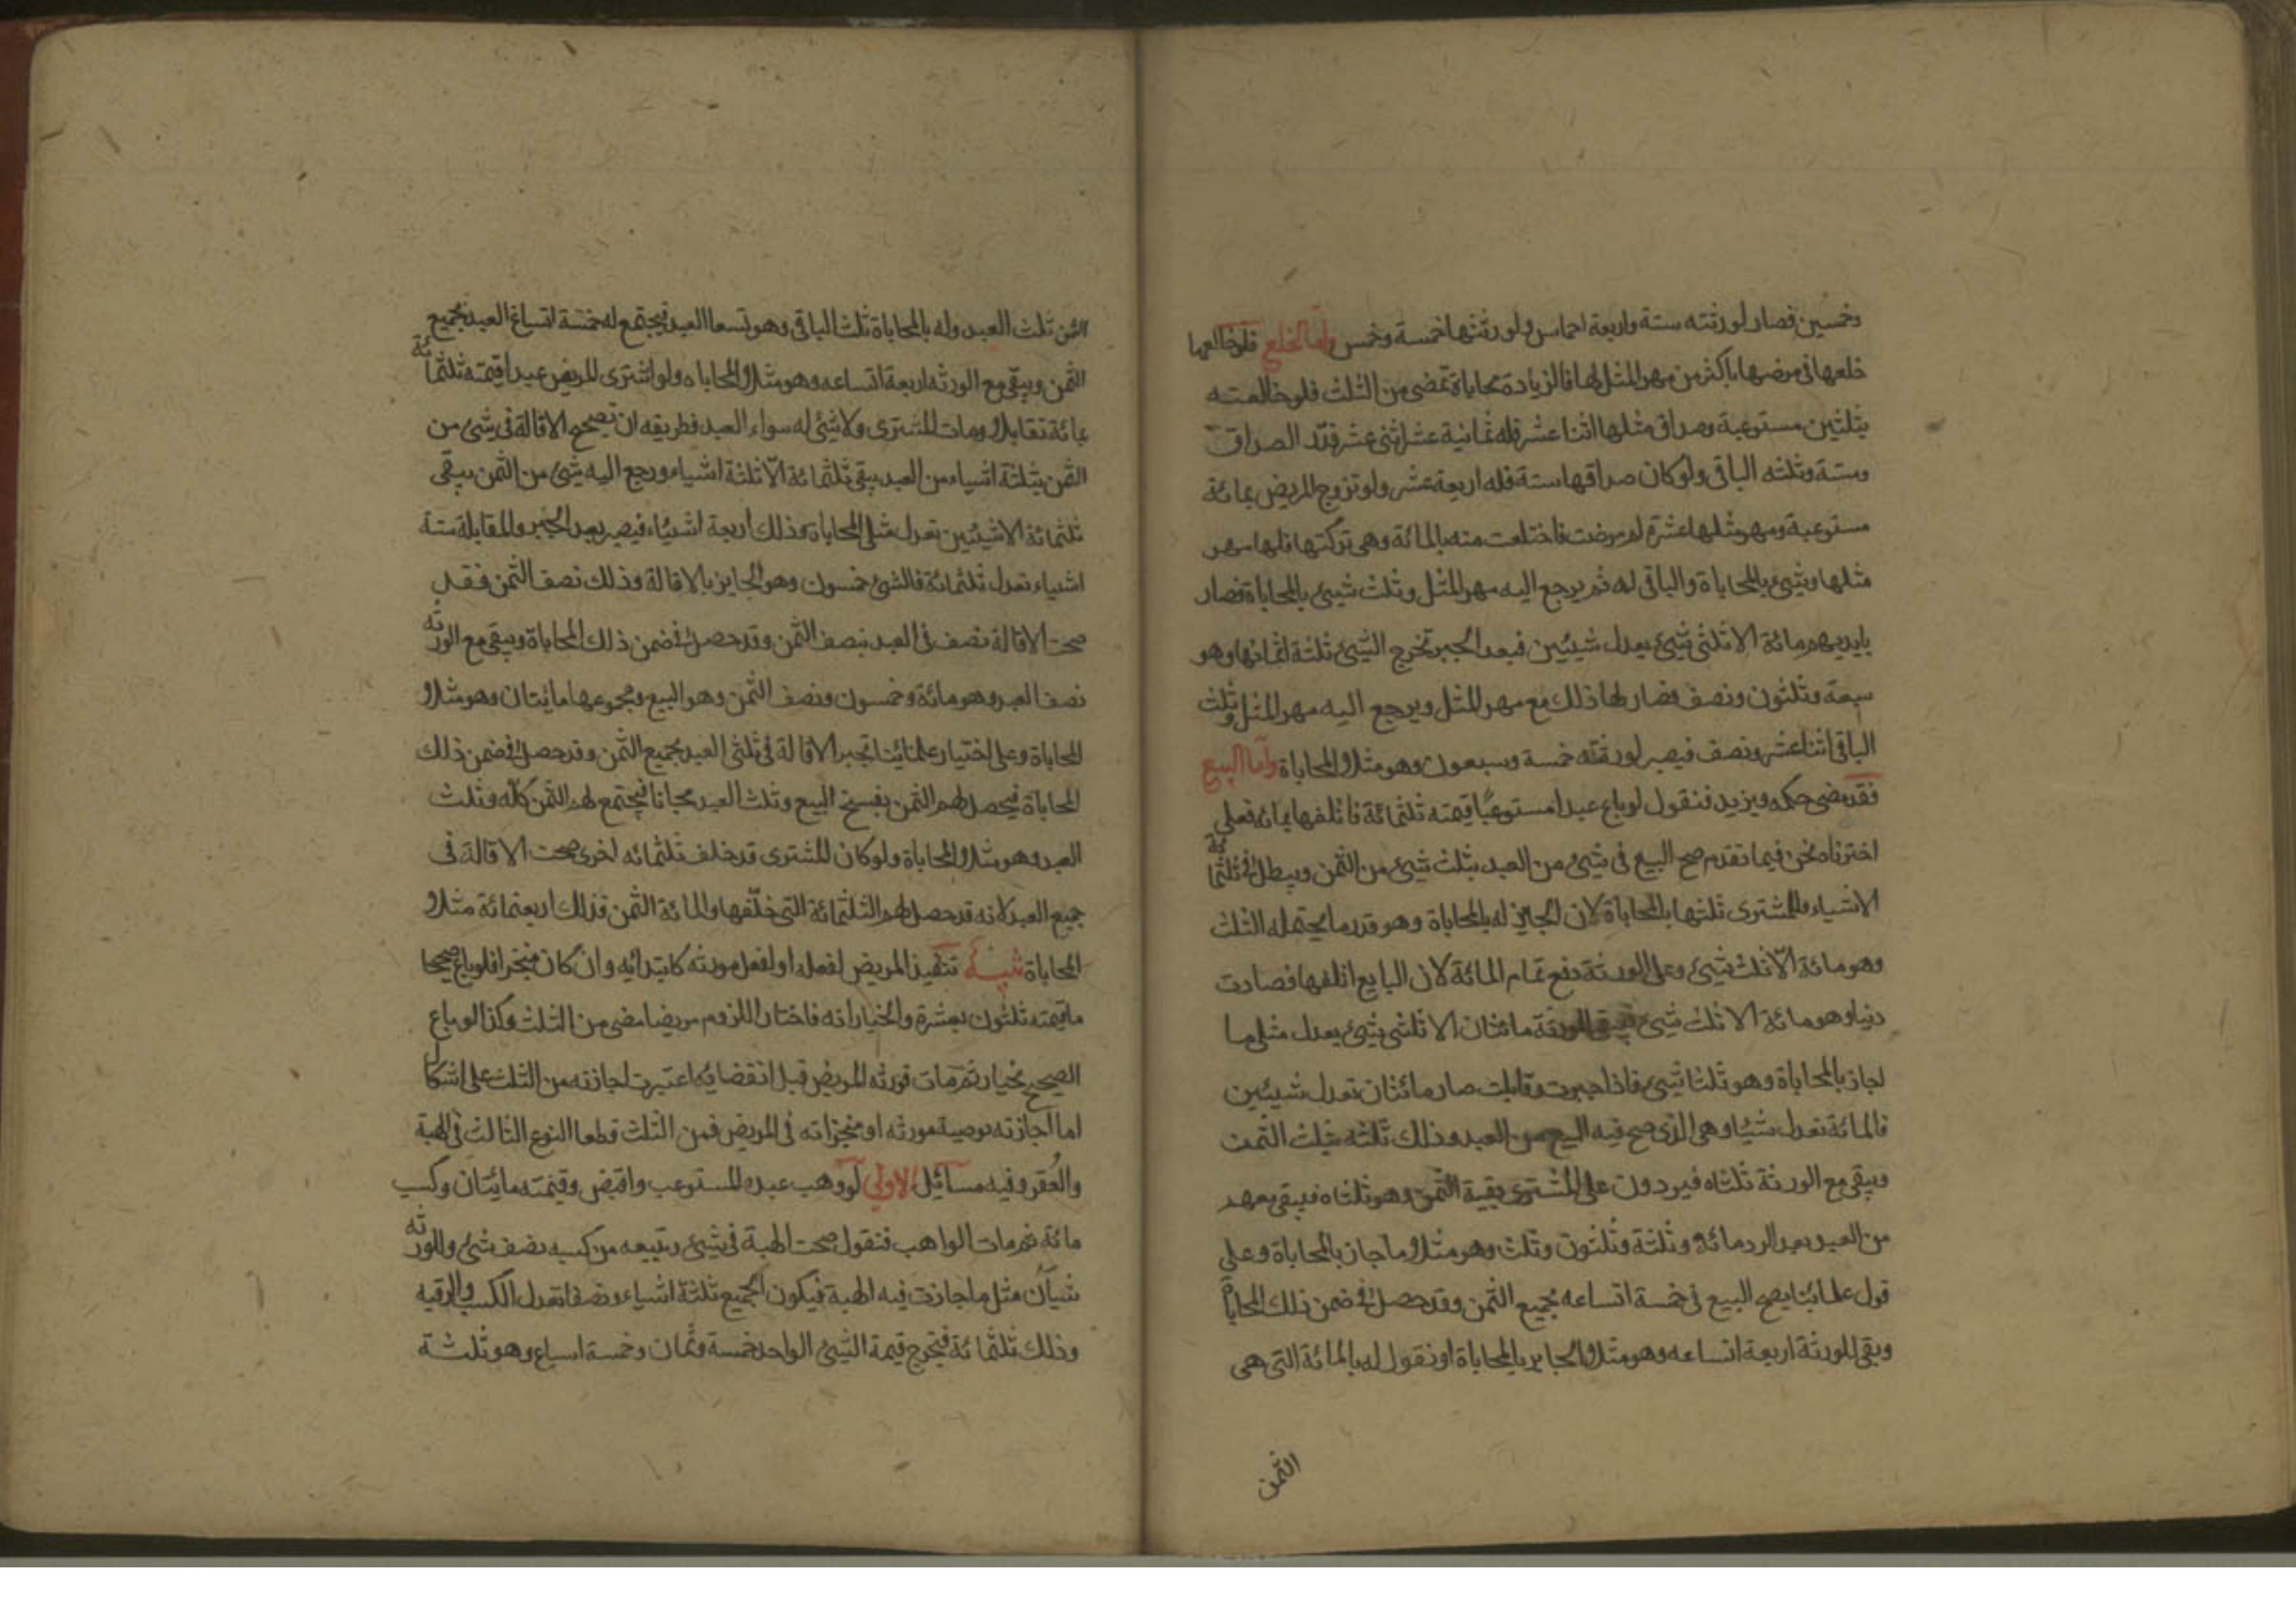 وخمسين فصار لورثته ستة واربعة اخماس ولورثتها خمسة وخمس واما الخلع فلو خالعها
خلعها في مرضها باكثر من مهر المثل لها فالزيادة محاباة تمضى من الثلث فلو خالعته
بثلثين مستوعبة وصداق مثلها اثنا عشر فله ثمانية عشر اثنى عشر قدر الصداق
وستة وثلثه الباقي ولو كان صداقها ستة فله اربعة عشر ولو تزوج المريض بمائة
مستوعبة ومهر مثلها عشرة ثم مرضت فاختلعت منه بالمائة وهي تركتها فلها مهر
مثلها وشيئ بالمحاباة والباقي له ثم يرجع اليه مهر المثل وثلث شيئ بالمحاباة فصار
بايديهم مائة الا ثلثي شيئ يعدل شيئين فبعد الجبر تخرج الشيئ ثلثة اثمانها وهو
سبعة وثلثون ونصف فصار لها ذلك مع مهر المثل ويرجع اليه مهر المثل وثلث
الباقي اثنا عشر ونصف فيصير لورثته خمسة وسبعون وهو مثلا المحاباة واما البيع
فقد مضى حكمه ويزيد فنقول لو باع عبدا مستوعبا قيمته ثلثمائة فاتلفها بمائة فعلى
اخترناه نحن فيما تقدم صح البيع في شيئ من العبد بثلث شيئ من الثمن ويبطل في ثلثمائة
الا شياء وللمشترى ثلثها بالمحاباة لان الجايز له بالمحاباة وهو قدر ما يحتمله الثلث
وهو مائة الا ثلث شيئ وعلى الورثة دفع تمام المائة لان البايع اتلفها فصارت
دينا وهو مائة الا ثلث شيئ فيبقى للورثة مائتان الا ثلثى شيئ يعدل مثلى ما
اجاز بالمحاباة وهو ثلثا شيئ فاذا جبرت وقابلت صار مائتان تعدل شيئين
فالمائة تعدل شيئا وهي الذى صح فيه البيع من العبد وذلك ثلثه بثلث الثمن
ويبقى مع الورثة ثلثاه فيردون على المشترى بقية الثمن وهو ثلثاه فيبقى معهم
من العبد بعد الرد مائة وثلثة وثلثون وثلث وهو مثلا ما جاز بالمحاباة وعلى
قول علمائنا يصح البيع في خمسة اتساعه بجميع الثمن وقد حصل في ضمن ذلك المحاباة
وبقى للورثة اربعة اتساعه وهو مثلا الجايز بالمحاباة او نقول له بالمائة التى هى
الثمن
الثمن ثلث العبد وله بالمحاباة ثلث الباقى وهو تسعا العبد فيجتمع له خمسة اتساع العبد بجميع
الثمن ويبقى مع الورثه اربعة اتساعه وهو مثلا المحاباه ولو اشترى المريض عبدا قيمته ثلثمائة
بمائة تقايلا ومات المشترى ولا شئ له سواء العبد فطريقه ان تصحح الاقالة في شئ من
الثمن بثلثة اشياء من العبد يبقى ثلثمائة الا ثلثة اشياء ورجع اليه شئ من الثمن يبقى
ثلثمائة الا شيئين تعدل مثلى المحاباة وذلك اربعة اشياء فيصير بعد الجبر والمقابلة ستة
اشياء تعدل ثلثمائة فالشئ خمسون وهو الجايز بالاقالة وذلك نصف الثمن فقد
صحت الاقالة نصف في العبد بنصف الثمن وقد حصل في ضمن ذلك المحاباة ويبقى مع الورثه
نصف العبد وهو مائة وخمسون ونصف الثمن وهو البيع ومجموعها مايتان وهو مثلا
المحاباة وعلى اختيار علمائنا تجبر الاقالة في ثلثى العبد بجميع الثمن وقد حصل في ضمن ذلك
المحاباة فيحصل لهم الثمن بفسخ البيع وثلث العبد مجانا فيجتمع لهم الثمن كله وثلث
العبد وهو مثلا المحاباة ولو كان المشترى قد خلف ثلثمائه اخرى صحت الاقالة في
جميع العبد لانه قد حصل لهم الثلثمائة التى خلفها والمائة الثمن فذلك اربعمائة مثلا
المحاباة تنبيه تنفيذ المريض لفعله او لفعل مورثه كابتدائه وان كان منجزا فلو باع صحيحا
ما قيمته ثلثون بعشرة والخيار له فاختار اللزوم مريضا مضى من الثلث وكذا لو باع
الصحيح بخيار ثم مات فورثه المريض قبل انقضائه اعتبرت اجازته من الثلث على اشكال
اما اجازته بوصية مورثه او منجزاته في المريض فمن الثلث قطعا النوع الثالث في الهبة
والعقر وفيه مسائل الاولى لو وهب عبده المستوعب واقبض وقيمته مايتان وكسب
مائة ثم مات الواهب فنقول صحت الهبة في شيئ ويتبعه من كسبه نصف شئ وللورثه
شيآن مثل ما جازت فيه الهبة فيكون الجميع ثلثة اشياء ونصفا تعدل الكسب والرقبه
وذلك ثلثمائة فتخرج قيمة الشيئ الواحد خمسة وثمان وخمسة اسباع وهو ثلثة